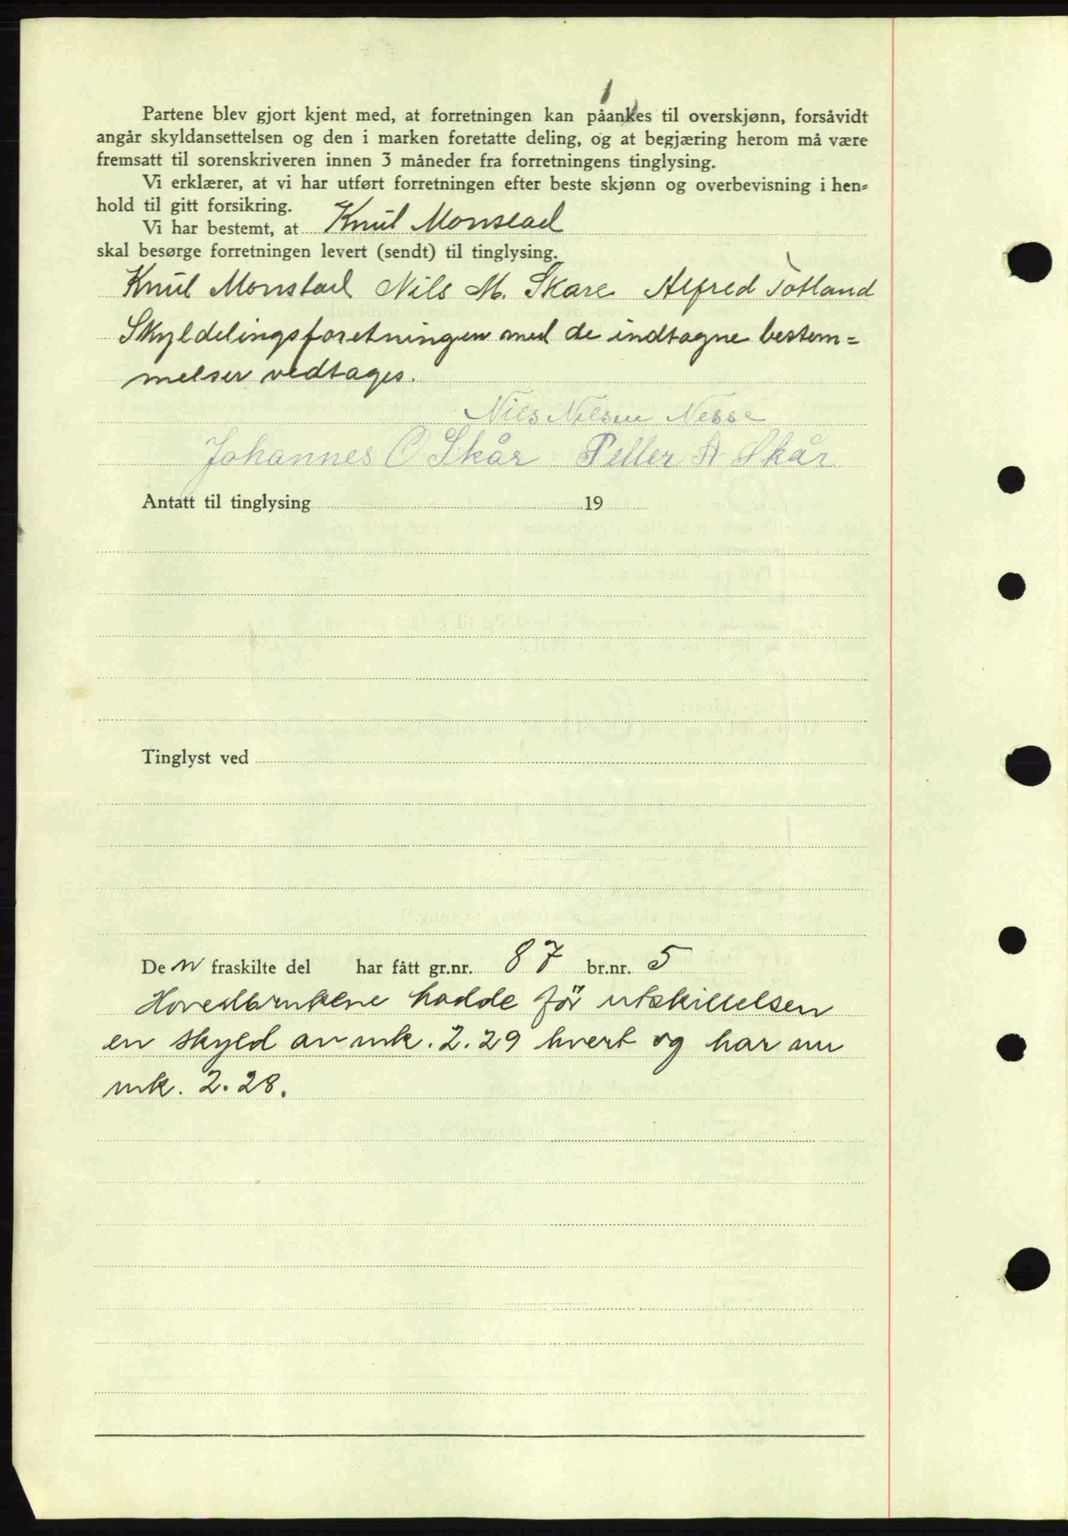 Partene blev gjort kjent med, at forretningen kan påankes til overskjønn, forsåvidt
angår skyldansettelsen og den i marken foretatte deling, og at begjæring herom må være
fremsatt til sorenskriveren innen 3 måneder fra forretningens tinglysing.
Vi erklærer, at vi har utført forretningen efter beste skjønn og overbevisning i hen=
hold til gitt forsikring.
Vi har bestemt, at Knut Monstad
skal besørge forretningen levert (sendt) til tinglysing.
Knut Monstad Nils M. Skare Alfred Totland
Skyldelingsforetningen med de indtagne bestem=
melser vedtages.
Nils Nilsen Nesse
Johannes O Skår Petter A Skår
Antatt til tinglysing 19
Tinglyst ved
De n fraskilte del har fått gr.nr. 87 br.nr. 5
Hovedbrukene hadde før utskillelsen
en skyld av mk. 2.29 hvert og har nu
mk. 2.28.